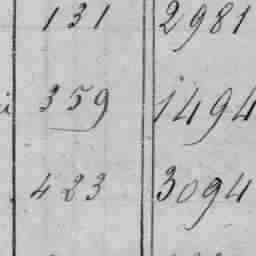 131 2981
359 1494
423 3094